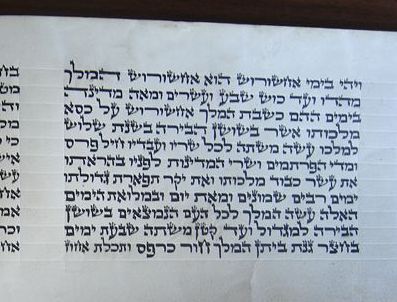 ויהי בימי אחשורוש הוא אחשורוש המלך
מהדו ועד כוש שבע ועשרים ומאה מדינה
בימים ההם כשבת המלך אחשורוש על כסא
מלכותו אשר בשושן הבירה בשנת שלוש
למלכו עשה משתה לכל שריו ועבדיו חיל פרס
ומדי הפרתמים ושרי המדינות לפניו בהראתו
את עשר כבוד מלכותו ואת יקר תפארת גדולתו
ימים רבים שמונים ומאת יום ובמלואת הימים
האלה עשה המלך לכל העם הנמצאים בשושן
הבירה למגדול ועד קטן משתה שבעת ימים
בחצר גנת ביתן המלך חור כרפס ותכלת אחוז